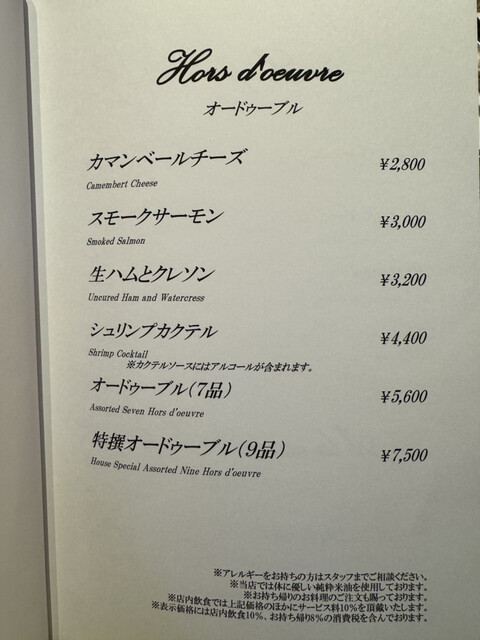 Hors d'oeuvre
オードゥーブル
カマンベールチーズ ¥2,800
Camembert Cheese
スモークサーモン ¥3,000
Smoked Salmon
生ハムとクレソン ¥3,200
Uncured Ham and Watercress
シュリンプカクテル ¥4,400
Shrimp Cocktail
※カクテルソースにはアルコールが含まれます。
オードゥーブル(7品) ¥5,600
Assorted Seven Hors d'oeuvre
特撰オードゥーブル(9品) ¥7,500
House Special Assorted Nine Hors d'oeuvre
※アレルギーをお持ちの方はスタッフまでご相談ください。
※当店では体に優しい純粋米油を使用しております。
※お持ち帰りのお料理のご注文も賜っております。
※店内飲食では上記価格のほかにサービス料10%を頂戴いたします。
※表示価格には店内飲食10%、お持ち帰り8%の消費税を含んでおります。